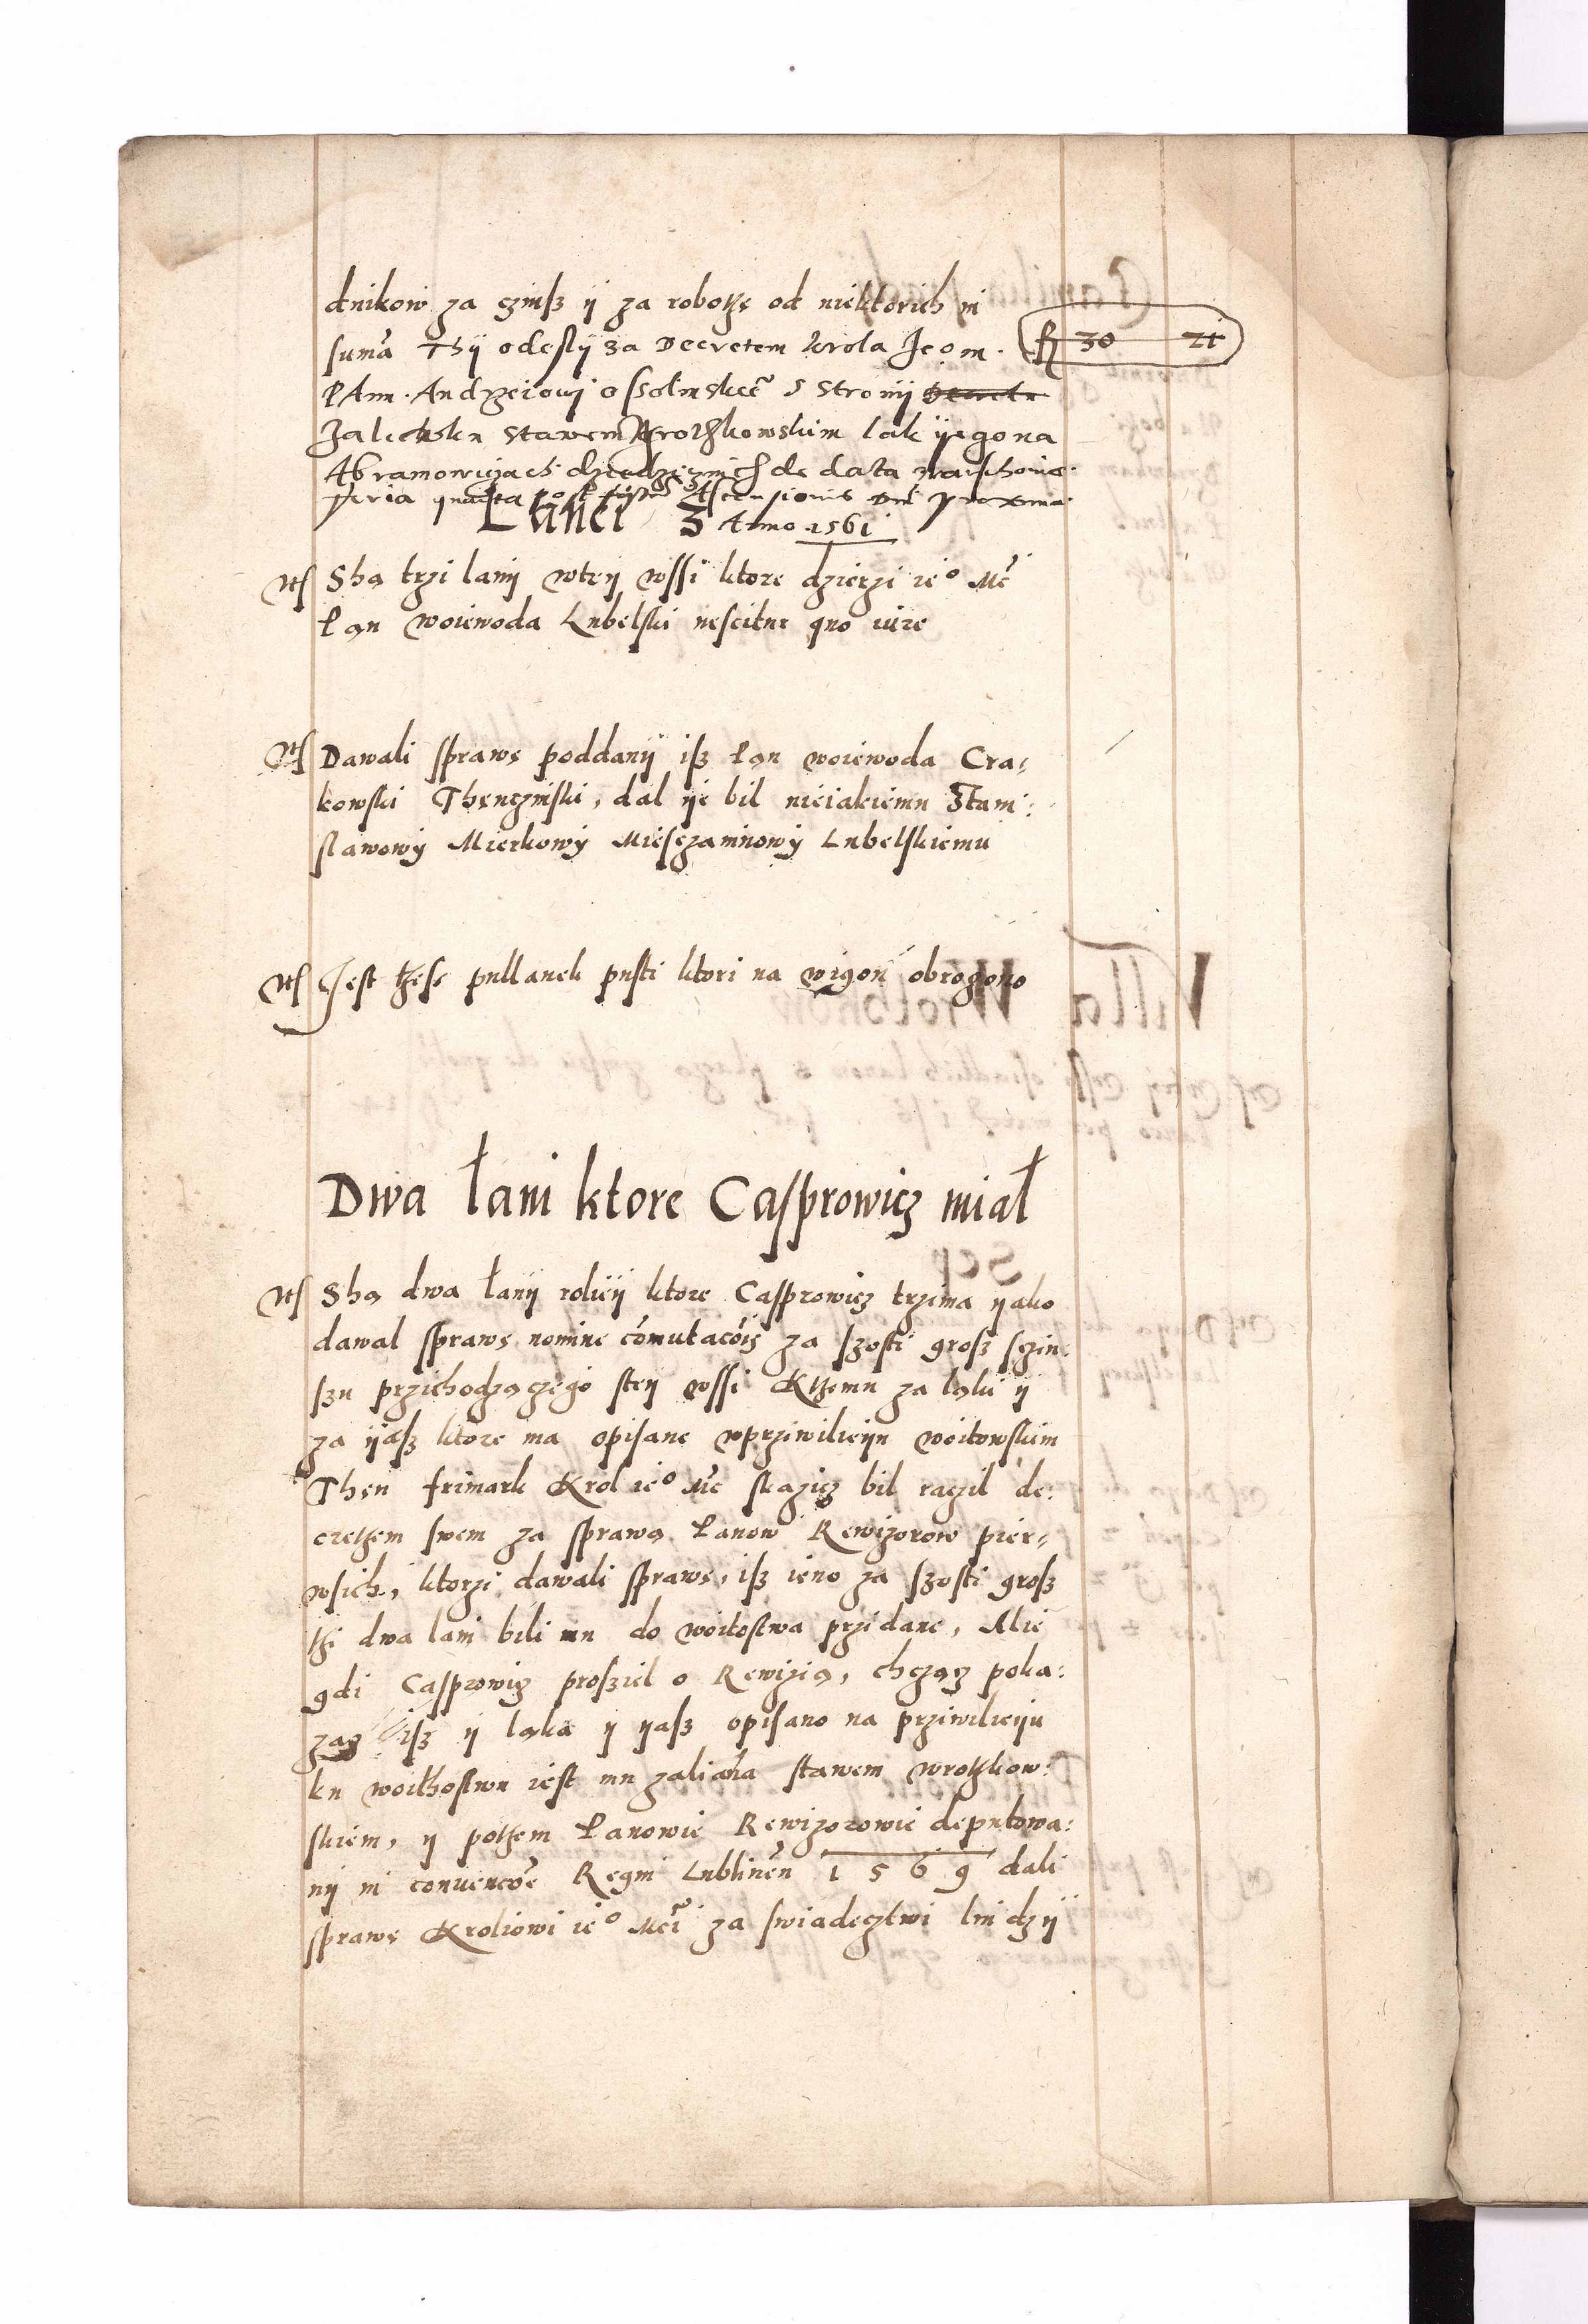 dnikow za czinsz ij za robothę od niektorich in
suma Thij odeslij za Decretem krola Jeom. fl 30 21
PAnn. Andrzeiowi ossolinskie͂ s Stronij
Zalewku Stawem Wrothkowskim lak ijego na
Abramowiczach dziedzicznich de data warschovie
Feria quarta post festum Ascensionis Dni proxima
Lanei 3 Anno 1561
Its Sthą trzi lanij wteij wssi ktore dzierzi ieo Mc
Pąn woiewoda Lubelski nescitur quo iure
Its Dawali sprawę poddanij isz Pąn woiewoda Cra-
kowski Thęnczinski, dal ije bil nieiakiemu Stani-
slawowij Mierkowij Miesczaninowij Lubelskiemu
Its Jest thesz pullanek pusti ktori na wigon obrogono
Dwa łani ktore Casprowicz miał
Its Sthą dwa łanij roliej ktore Casprowicz trzima ijako
dawal sprawę nomine comutacois za szosti grosz sczin-
szu przichodzączego steij wssi Kthemu za ląki ij
za ijasz ktore ma opisane wprziwilieiju woitowskim
Thęn frimark Krol ieo Mc skazicz bil raczil de-
crethem swem za sprawą Panow Rewizorow pier-
wsich, ktorzi dawali sprawę, isz ieno za szosti grosz
thi dwa lani bili mu do woitostwa przidane, Alie
gdi Casprowicz prosziel o Rewizią, chcząncz poka-
zacz isz ij ląka ij ijasz opisano na prziwilieiju
ku woithostwu iest mu zaliana stawem wrothkow-
skiem, ij pothem Panowie Rewizorowie deputowa-
nij in convencoe Regni Lublinen 1569 dali
sprawę Kroliowi ieo Mci za swiadecztwi liudzij